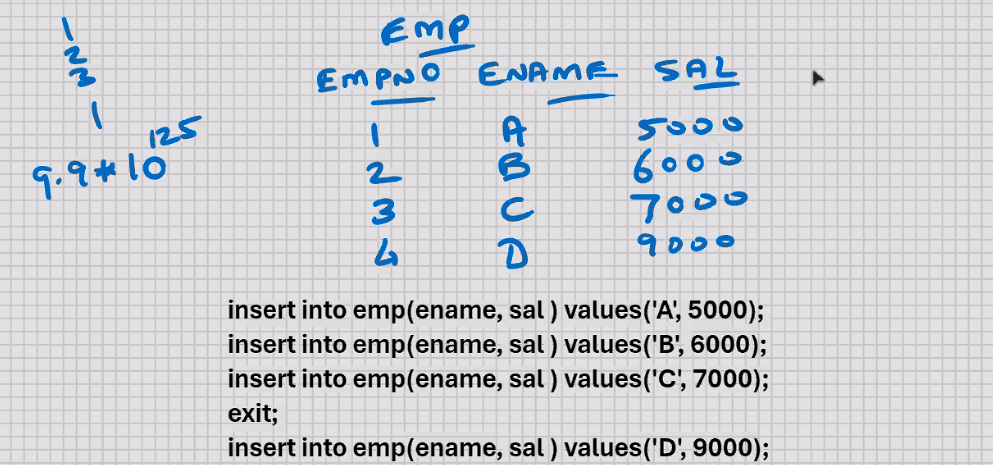 1
2
3
1
9.9*10^125
EMP
EMPNO ENAME SAL
1 A 5000
2 B 6000
3 C 7000
4 D 9000
insert into emp(ename, sal ) values('A', 5000);
insert into emp(ename, sal ) values('B', 6000);
insert into emp(ename, sal ) values('C', 7000);
exit;
insert into emp(ename, sal ) values('D', 9000);